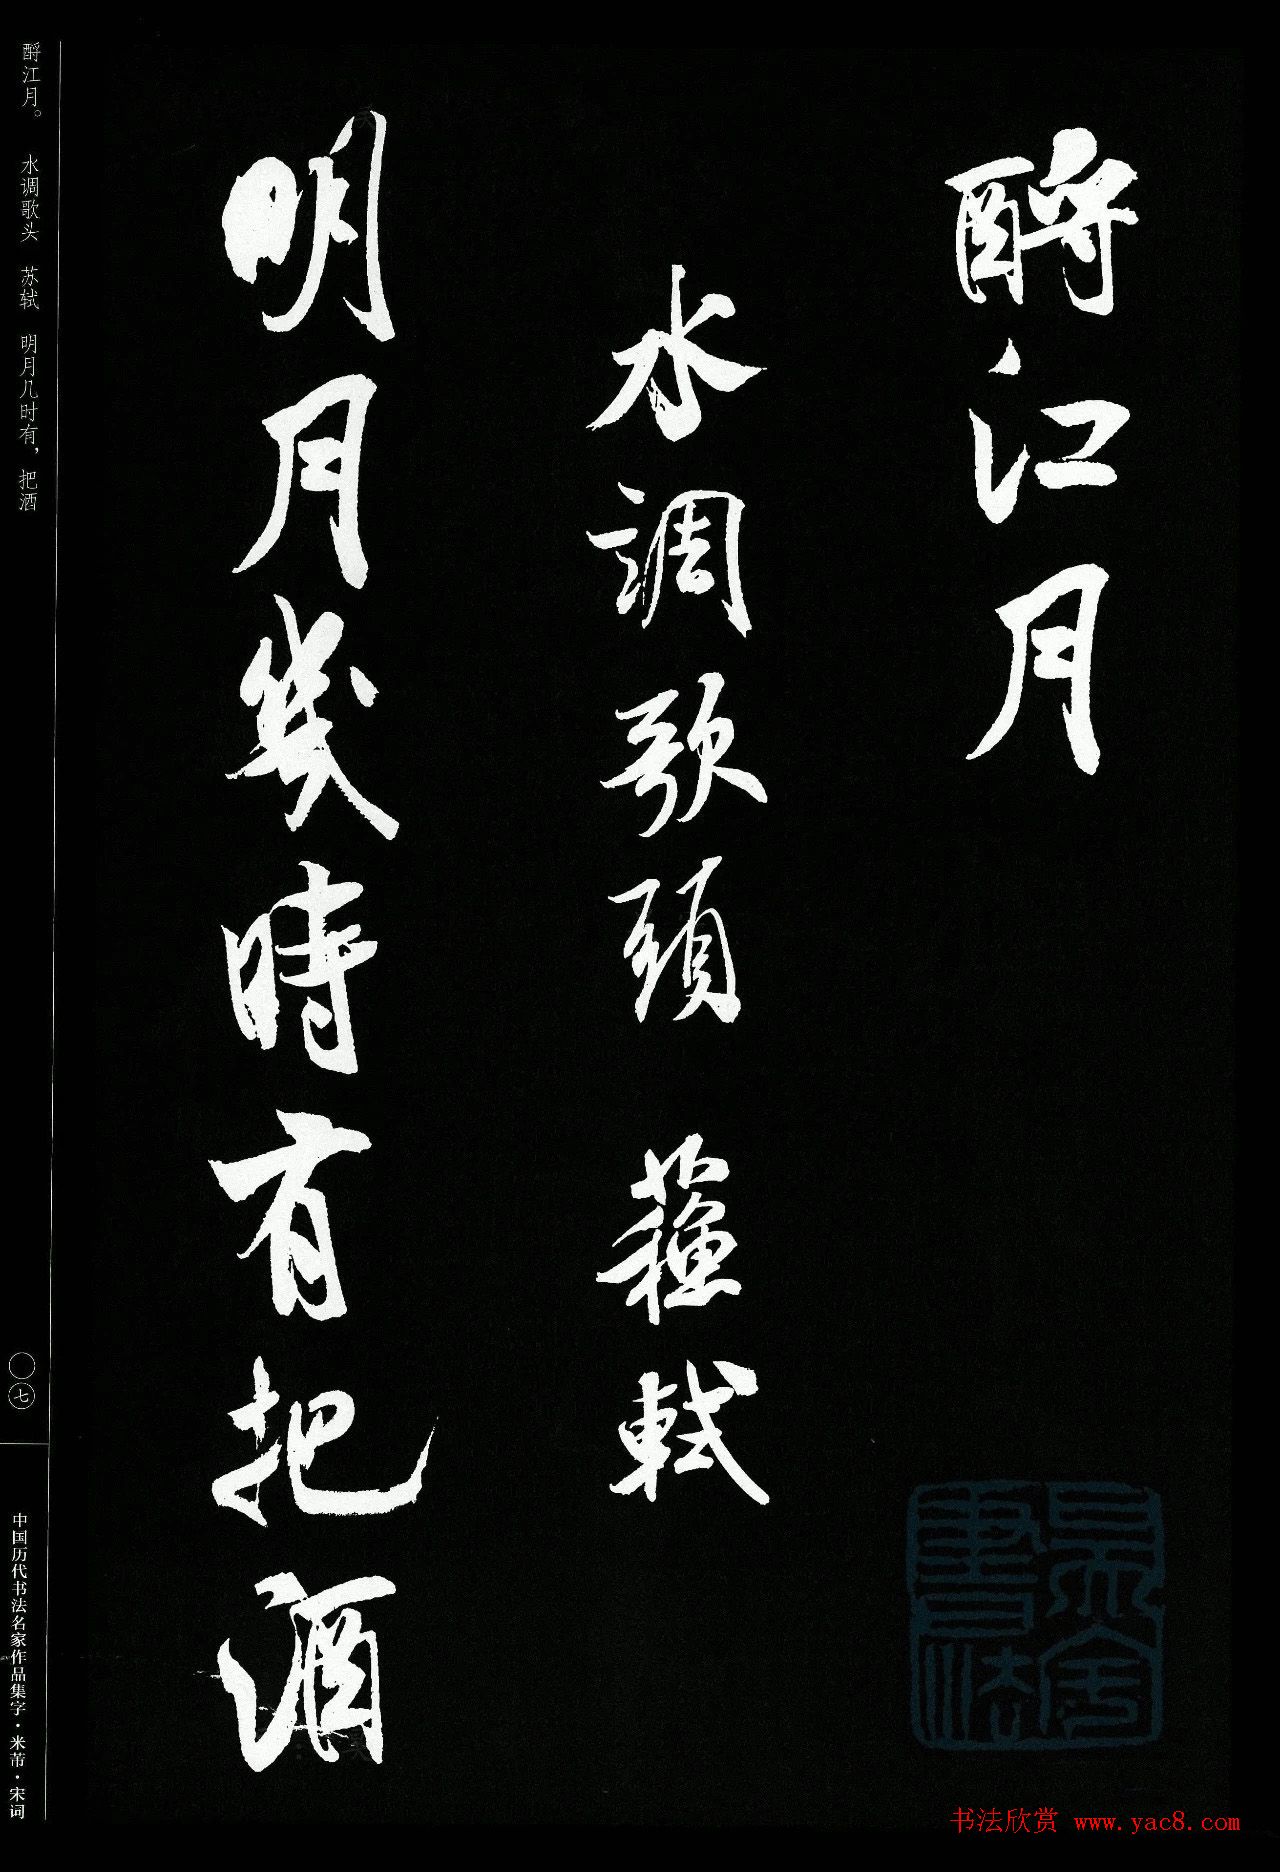 酹江月
水調歌頭 蘇軾
明月幾時有把酒
酹江月。 水调歌头 苏轼 明月几时有，把酒
〇七
中国历代书法名家作品集字·米芾·宋词
书法欣赏 www.yac8.com